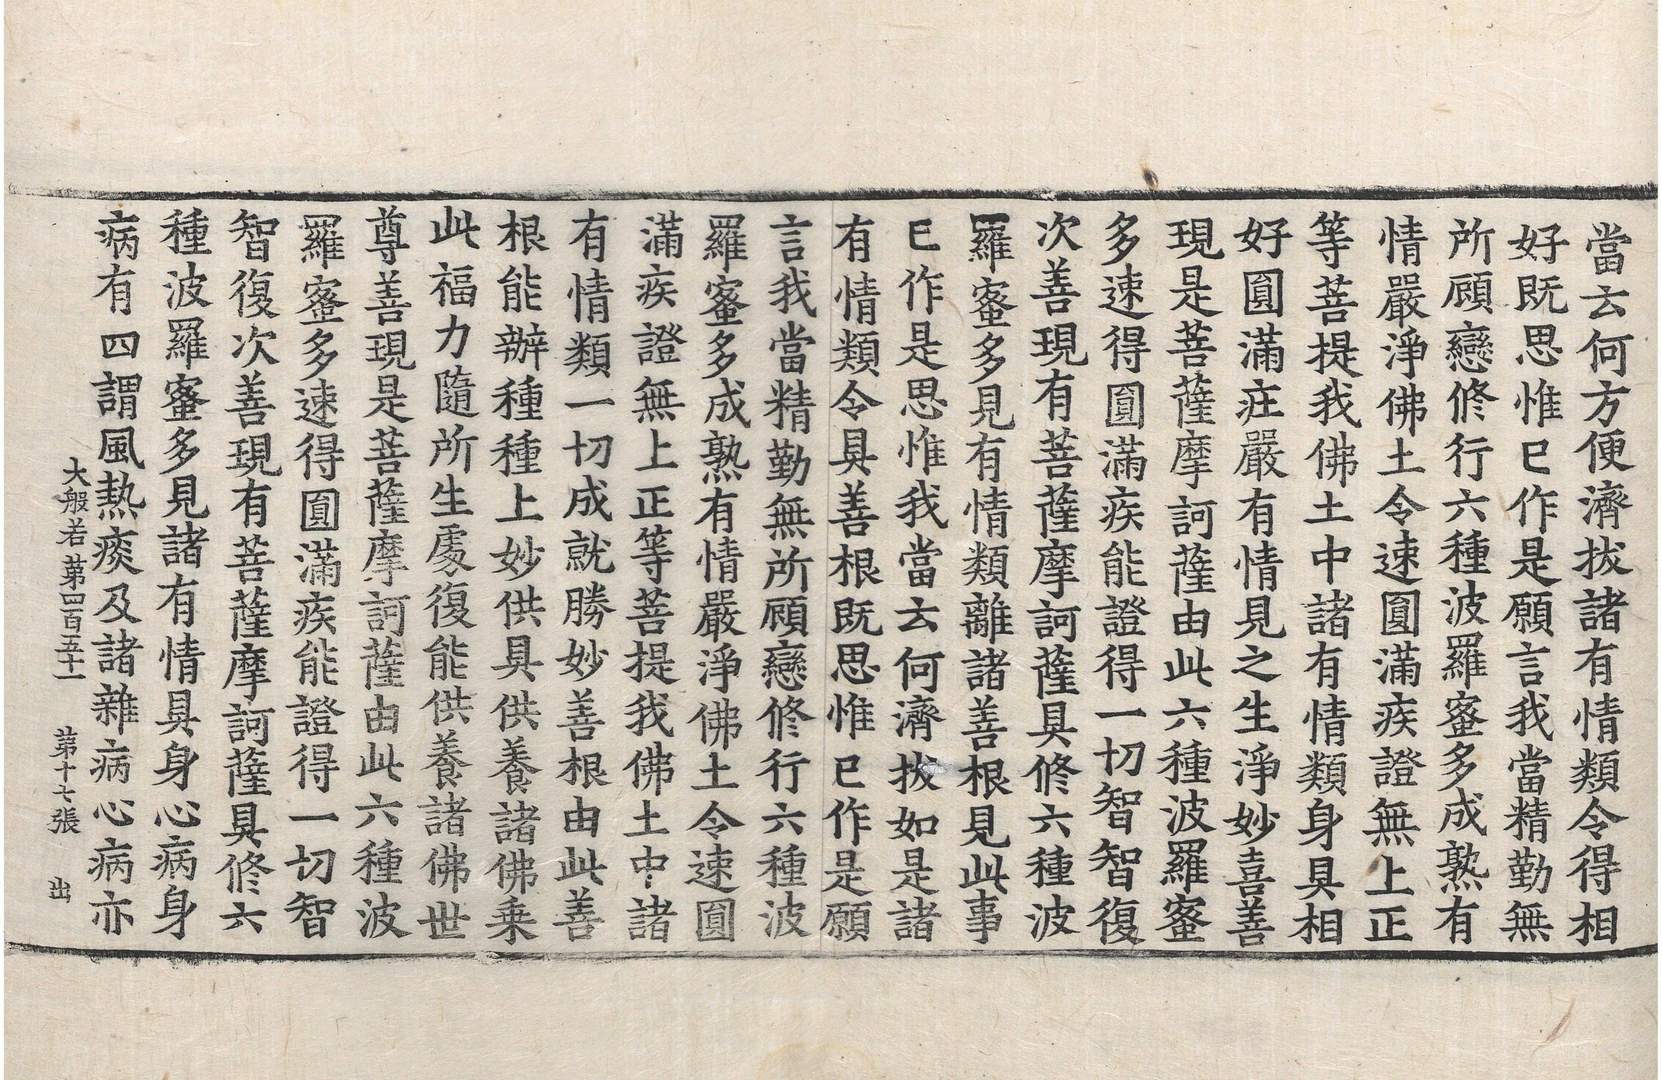 當云何方便濟拔諸有情類令得相
好旣思惟已作是願言我當精勤無
所顧戀修行六種波羅蜜多成熟有
情嚴淨佛土令速圓滿疾證無上正
等菩提我佛土中諸有情類身具相
好圓滿莊嚴有情見之生淨妙喜善
現是菩薩摩訶薩由此六種波羅蜜
多速得圓滿疾能證得一切智智復
次善現有菩薩摩訶薩具修六種波
羅蜜多見有情類離諸善根見此事
已作是思惟我當云何濟拔如是諸
有情類令具善根旣思惟已作是願
言我當精勤無所顧戀修行六種波
羅蜜多成熟有情嚴淨佛土令速圓
滿疾證無上正等菩提我佛土中諸
有情類一切成就勝妙善根由此善
根能辦種種上妙供具供養諸佛乘
此福力隨所生處復能供養諸佛世
尊善現是菩薩摩訶薩由此六種波
羅蜜多速得圓滿疾能證得一切智
智復次善現有菩薩摩訶薩具修六
種波羅蜜多見諸有情具身心病身
病有四謂風熱痰及諸雜病心病亦
大般若第四百五十一 第十七張 出